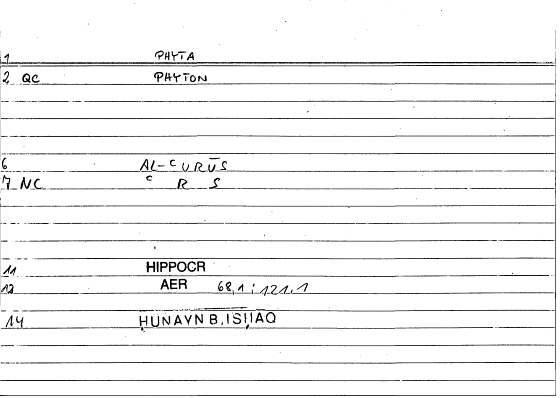 1 PHYTA
2 QC PHYTON
6 AL-ᶜURŪS
7 NC ᶜ R S
11 HIPPOCR
12 AER 68,1; 121,1
14 ḤUNAYN B. ISḤĀQ